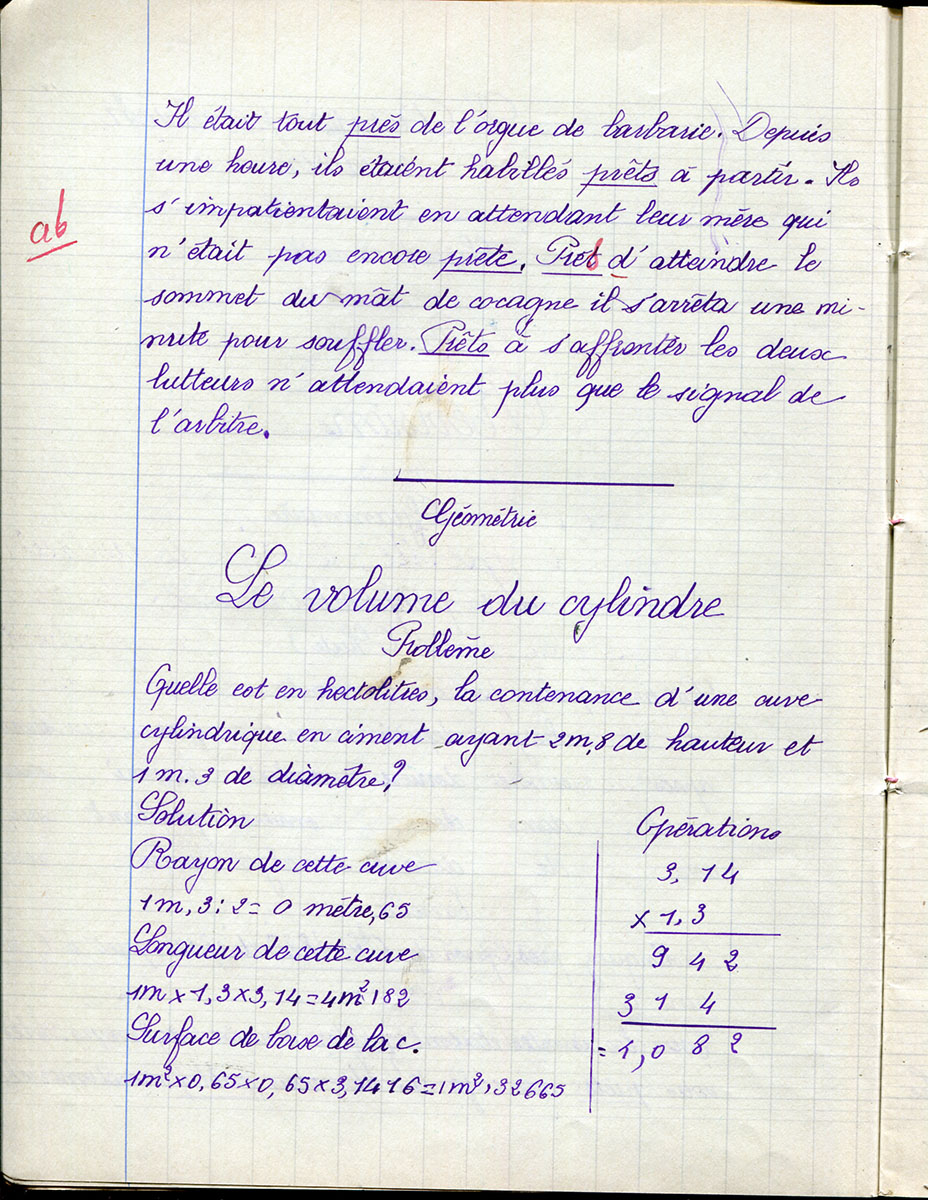 Il était tout près de l'orgue de barbarie. Depuis
une heure, ils étaient habillés prêts à partir. Ils
s'impatientaient en attendant leur mère qui
ab
n'était pas encore prête. Près d'atteindre le
sommet du mât de cocagne il s'arrêta une mi-
nute pour souffler. Prêts à s'affronter les deux
lutteurs n'attendaient plus que le signal de
l'arbitre.
Géométrie
Le volume du cylindre
Problème
Quelle est en hectolitres, la contenance d'une cuve
cylindrique en ciment ayant 2m,8 de hauteur et
1m.3 de diamètre?
Solution
Opérations
Rayon de cette cuve
3,14
1m,3 : 2 = 0 mètre,65
x 1,3
Longueur de cette cuve
9 4 2
1m x 1,3 x 3,14 = 4m²182
3 1 4
Surface de base de la c.
= 4,0 8 2
1m² x 0,65 x 0,65 x 3,1416 = 1m²,32665